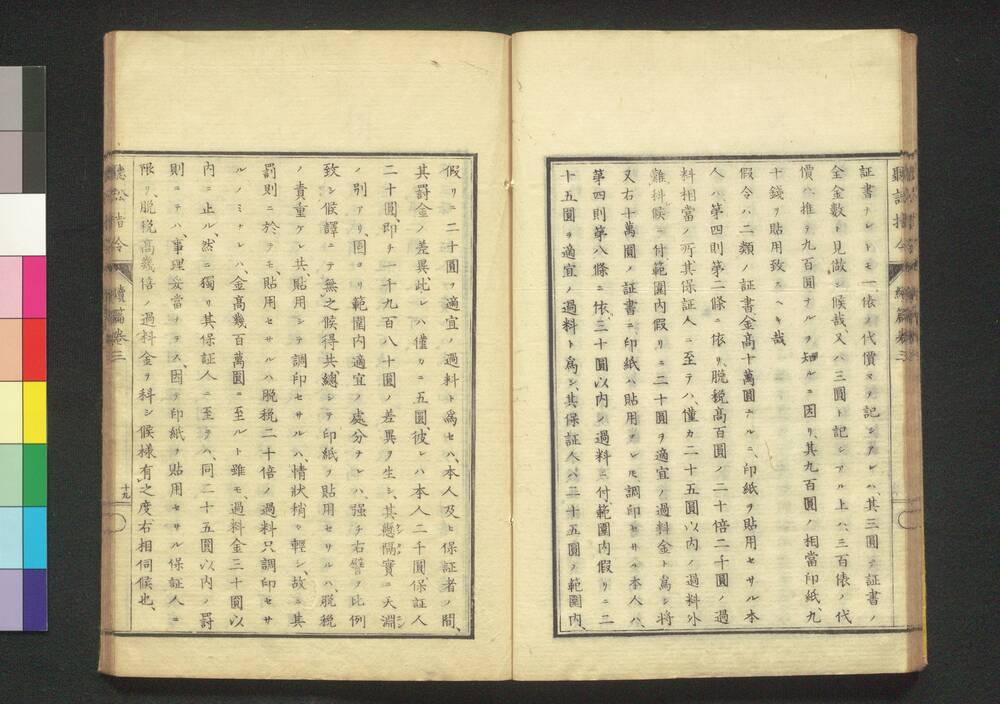 證書ナレトモ一俵ノ代價マヲ記シアレハ其三圓ヲ證書ノ
全金數ト見做シ候哉、又ハ三圓ト記シアル上ハ三百俵ノ代
價ハ推テ九百圓ナルヲ知ルニ因リ、其九百圓ノ相當印紙、九
十錢ヲ貼用致スヘキ哉
假令ハ二類ノ証書金高十萬圓ナルニ、印紙ヲ貼用セサル本
人ハ第四則第二條ニ依リ、脱税高百圓ノ二十倍二千圓ノ過
料相當ノ所其保証人ニ至テハ、僅カ二十五圓以内ノ過料外
難科候ニ付範圍内假リニ二十圓ヲ適宜ノ過料金ト爲シ將
又右十萬圓ノ証書ニ印紙ハ貼用アレ𪜈、調印セサル本人ハ、
第四則第八條ニ依、三十圓以内ノ過料ニ付、範圍内假リニ二
十五圓ヲ適宜ノ過料ト爲シ、其保証人ハ二十五圓ノ範圍内、
聽訟指令 續篇卷三
假リニ二十圓ヲ適宜ノ過料ト爲セハ、本人及ヒ保証者ノ間、
其罰金ノ差異、此レハ僅カニ五圓、彼レハ本人二千圓保証人
二十圓、即チ一千九百八十圓ノ差異ヲ生シ、其懸隔實ニ天淵
ノ別アリ、固ヨリ範圍内適宜ノ處分ナレハ、强チ右譬ヲ比例
致シ候譯ニテ無之候得共、總シテ印紙ヲ貼用セサルハ、脱税
ノ責重ケレ共、貼用シテ調印セサルハ、情狀稍々輕シ、故ニ其
罰則ニ於テモ、貼用セサルハ脱税二十倍ノ過料只調印セサ
ルノミナレハ、金高幾百萬圓ニ至ルト雖モ、過料金三十圓以
内ニ止ル、然ニ獨リ其保証人ニ至テハ、同二十五圓以内ノ罰
則ニテハ、事理妥當ナラス、因テ印紙ヲ貼用セサル保証人ニ
限リ、脱税高幾倍ノ過料金ヲ科シ候樣有之度右相伺候也、
聽訟指令 續篇卷三 十九